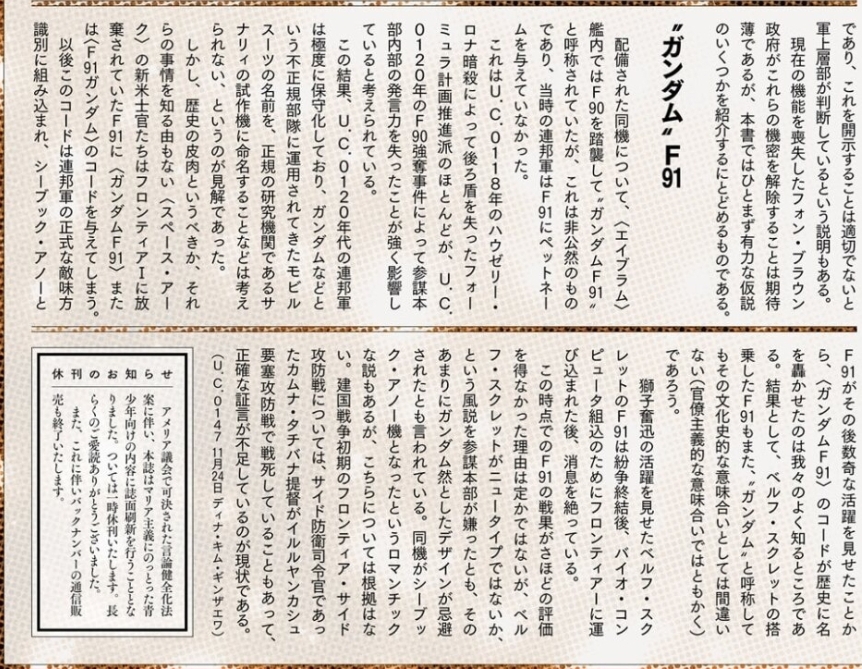 であり、これを開示することは適切でないと
軍上層部が判断しているという説明もある。
現在の機能を喪失したフォン・ブラウン
政府がこれらの機密を解除することは期待
薄であるが、本書ではひとまず有力な仮説
のいくつかを紹介するにとどめるものである。
〝ガンダム〟F91
配備された同機について、〈エイブラム〉
艦内ではF90を踏襲して〝ガンダムF91〟
と呼称されていたが、これは非公然のもの
であり、当時の連邦軍はF91にペットネー
ムを与えていなかった。
これはU.C.0118年のハウゼリー・
ロナ暗殺によって後ろ盾を失ったフォー
ミュラ計画推進派のほとんどが、U.C.
0120年のF90強奪事件によって参謀本
部内部の発言力を失ったことが強く影響し
ていると考えられている。
この結果、U.C.0120年代の連邦軍
は極度に保守化しており、ガンダムなどと
いう不正規部隊に運用されてきたモビル
スーツの名前を、正規の研究機関であるサ
ナリィの試作機に命名することなどは考え
られない、というのが見解であった。
しかし、歴史の皮肉というべきか、それ
らの事情を知る由もない〈スペース・アー
ク〉の新米士官たちはフロンティアⅠに放
棄されていたF91に〈ガンダムF91〉また
は〈F91ガンダム〉のコードを与えてしまう。
以後このコードは連邦軍の正式な敵味方
識別に組み込まれ、シーブック・アノーと
F91がその後数奇な活躍を見せたことか
ら、〈ガンダムF91〉のコードが歴史に名
を轟かせたのは我々のよく知るところであ
る。結果として、ベルフ・スクレットの搭
乗したF91もまた、〝ガンダム〟と呼称して
もその文化史的な意味合いとしては間違い
ない(官僚主義的な意味合いではともかく)
であろう。
獅子奮迅の活躍を見せたベルフ・スク
レットのF91は紛争終結後、バイオ・コン
ピュータ組込のためにフロンティアⅠに運
び込まれた後、消息を絶っている。
この時点でのF91の戦果がさほどの評価
を得なかった理由は定かではないが、ベル
フ・スクレットがニュータイプではないか、
という風説を参謀本部が嫌ったとも、その
あまりにガンダム然としたデザインが忌避
されたとも言われている。同機がシーブッ
ク・アノー機となったというロマンチック
な説もあるが、こちらについては根拠はな
い。建国戦争初期のフロンティア・サイド
攻防戦については、サイド防衛司令官であっ
たカムナ・タチバナ提督がイルルヤンカシュ
要塞攻防戦で戦死していることもあって、
正確な証言が不足しているのが現状である。
(U.C.0147 11月24日 ディナ・キム・ギンザエワ)
休刊のお知らせ
アメリア議会で可決された言論健全化法
案に伴い、本誌はマリア主義にのっとった青
少年向けの内容に誌面刷新を行うこととな
りました。ついては一時休刊いたします。長
らくのご愛読ありがとうございました。
また、これに伴いバックナンバーの通信販
売も終了いたします。